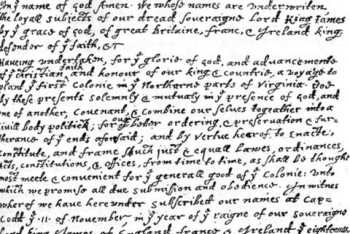 In yᵉ name of god Amen. We whose names are underwriten.
the loyall subjects of our dread soveraigne Lord King James
by yᵉ grace of god, of great Britaine, franc, & Ireland king
defender of yᵉ faith, &c
Haveing undertaken, for yᵉ glorie of god, and advancemente
of yᵉ christian faith and honour of our king & countrie, a voyage to
plant yᵉ first colonie in yᵉ Northerne parts of Virginia. Doe
by these presents solemnly & mutualy in yᵉ presence of god, and
one of another, covenant, & combine our selves togeather into a
civill body politick; for our better ordering, & preservation & fur
therance of yᵉ ends aforesaid; and by vertue hearof to enacte,
constitute, and frame such just & equall Lawes, ordinances,
Acts, constitutions, & offices, from time to time, as shall be thought
most meete & convenient for yᵉ generall good of yᵉ colonie: unto
which we promise all due submission and obedience. In witnes
wherof we have hereunder subscribed our names at Cap=
Codd yᵉ .11. of November, in yᵉ year of yᵉ raigne of our soveraigne
Lord king James of England, france, & Ireland yᵉ eighteenth